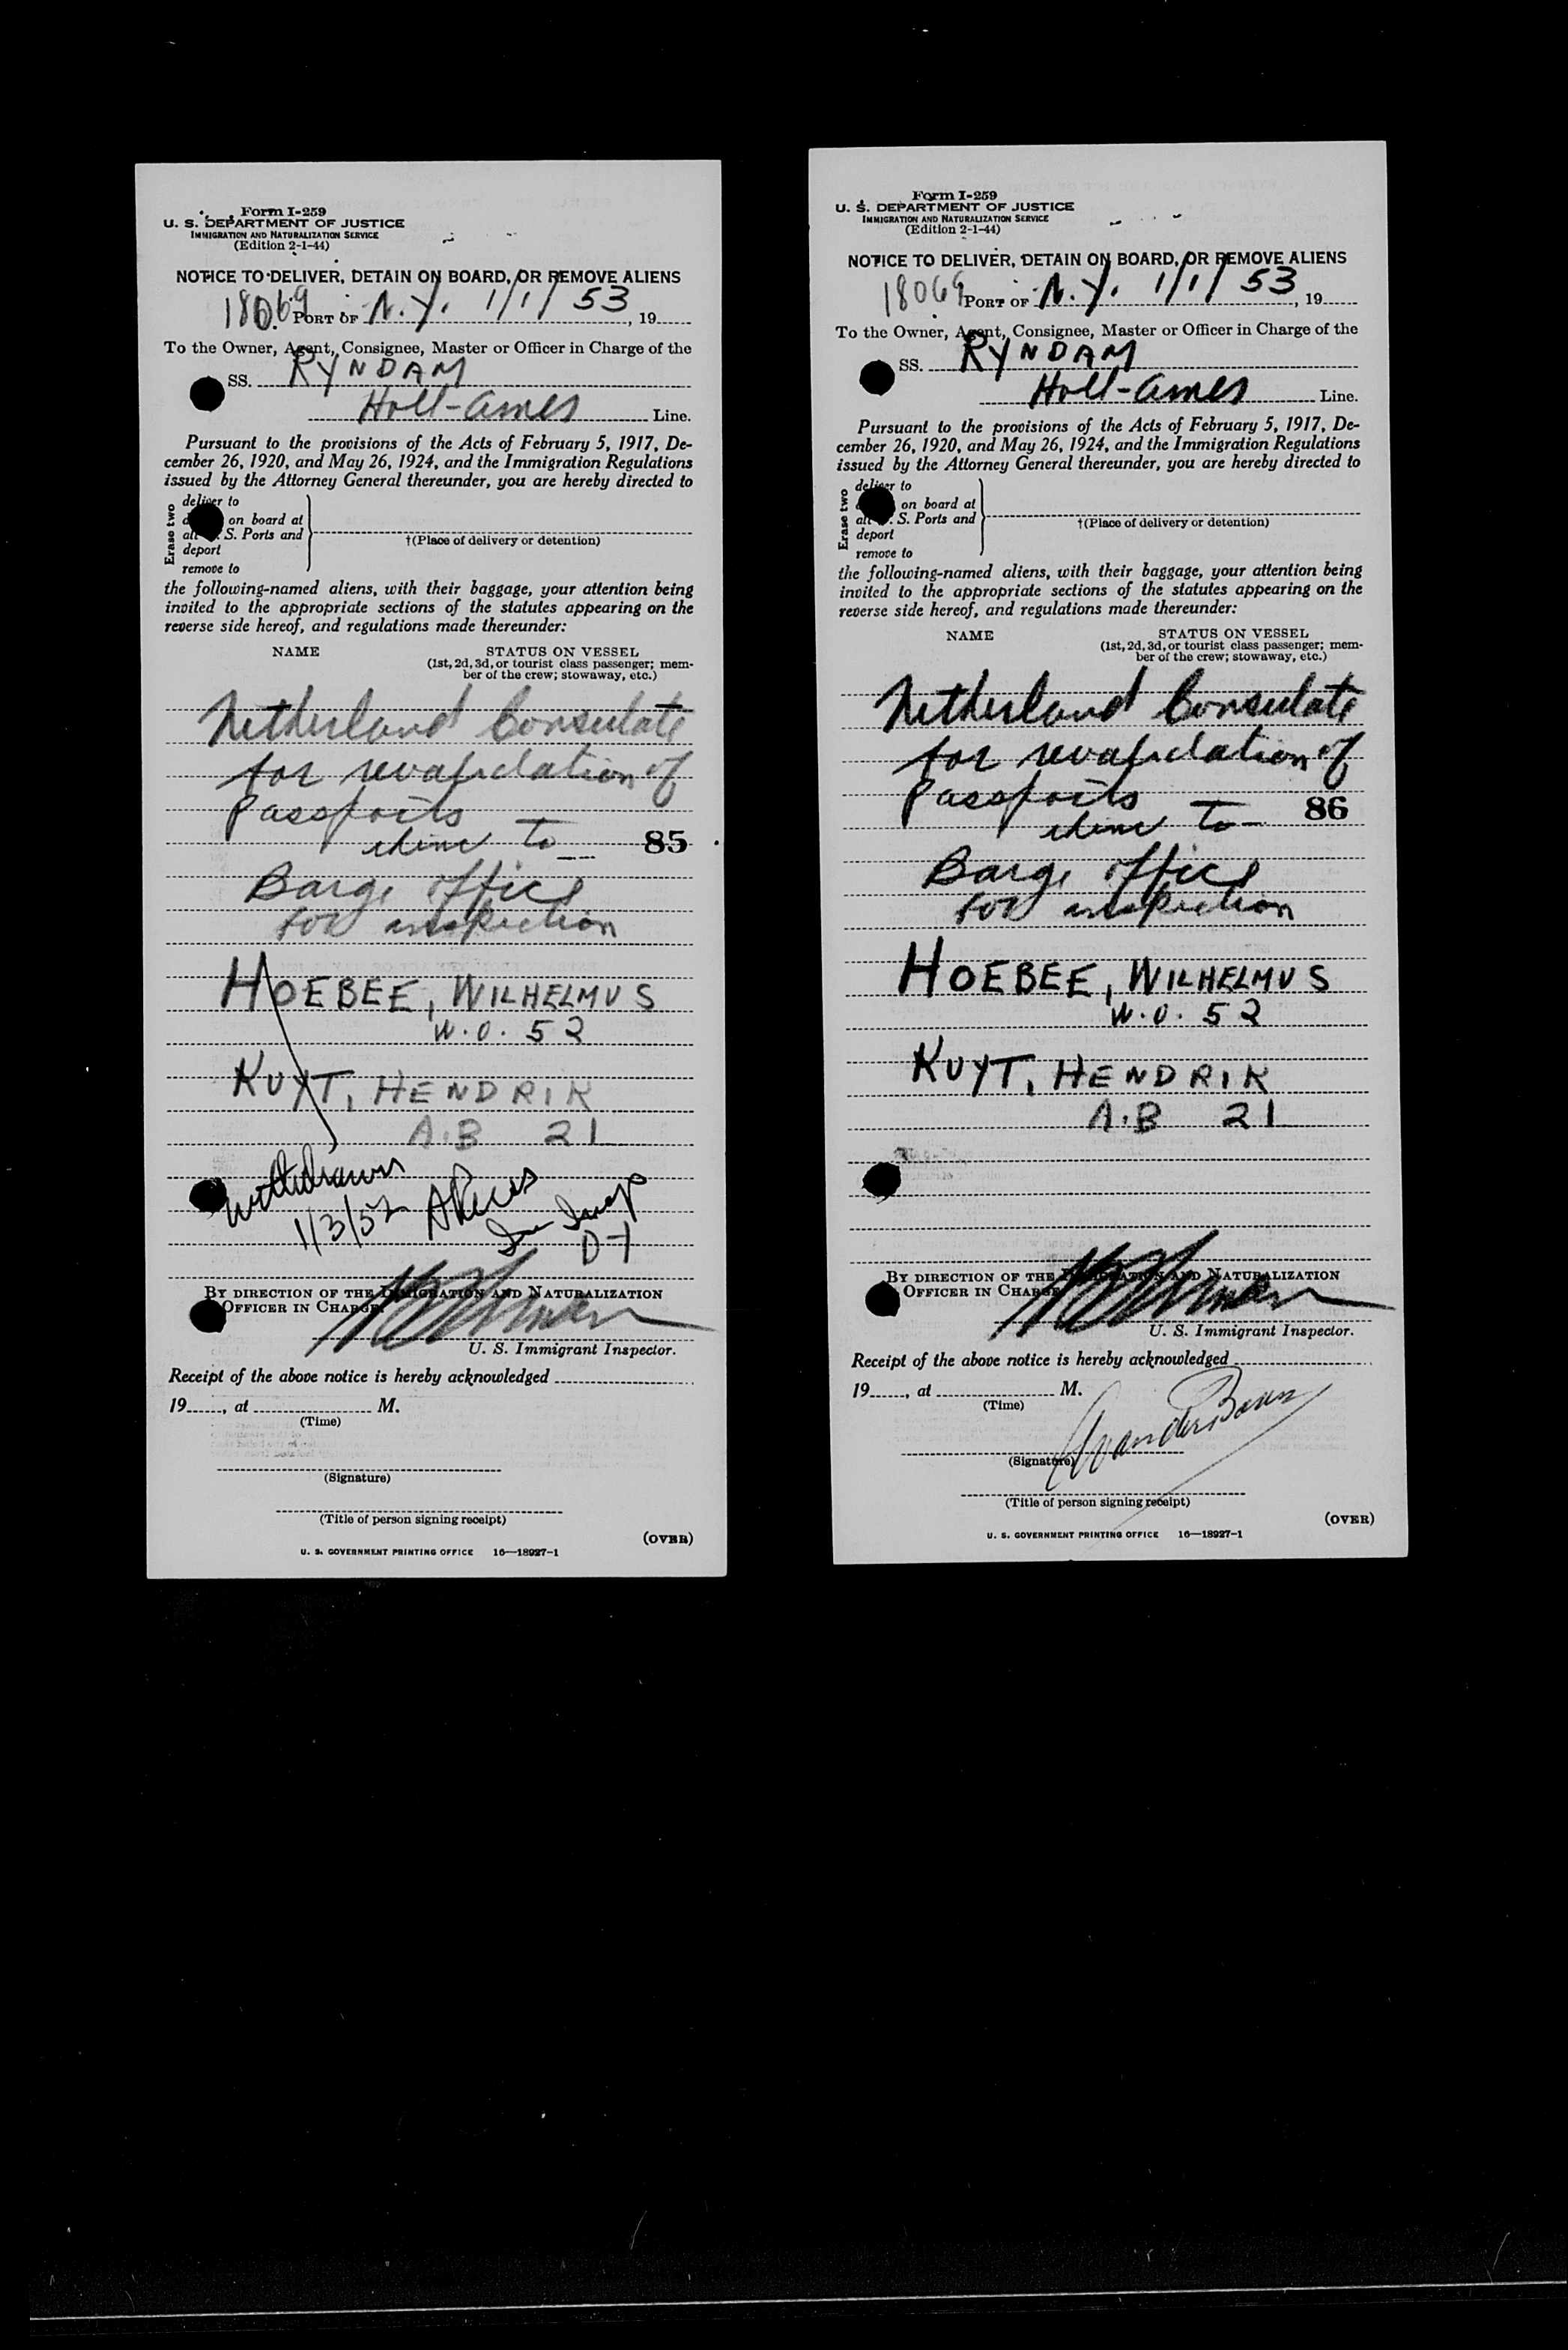 Form I-259
U. S. DEPARTMENT OF JUSTICE
IMMIGRATION AND NATURALIZATION SERVICE
(Edition 2-1-44)
NOTICE TO DELIVER, DETAIN ON BOARD, OR REMOVE ALIENS
18069 PORT OF N.Y. 1/1/53, 19
To the Owner, Agent, Consignee, Master or Officer in Charge of the
SS. RYNDAM
Holl-Amer Line.
Pursuant to the provisions of the Acts of February 5, 1917, De-
cember 26, 1920, and May 26, 1924, and the Immigration Regulations
issued by the Attorney General thereunder, you are hereby directed to
Erase two
deliver to
on board at
all S. Ports and
deport
remove to
†(Place of delivery or detention)
the following-named aliens, with their baggage, your attention being
invited to the appropriate sections of the statutes appearing on the
reverse side hereof, and regulations made thereunder:
NAME STATUS ON VESSEL
(1st, 2d, 3d, or tourist class passenger; mem-
ber of the crew; stowaway, etc.)
Netherland Consulate
for revalidation of
Passports
to 85
Barge office
for inspection
HOEBEE, WILHELMUS
W.O. 52
KUYT, HENDRIK
A.B 21
Withdrawn
1/3/52
D-1
BY DIRECTION OF THE IMMIGRATION AND NATURALIZATION
OFFICER IN CHARGE
U. S. Immigrant Inspector.
Receipt of the above notice is hereby acknowledged
19, at M.
(Time)
(Signature)
(Title of person signing receipt)
(OVER)
U. S. GOVERNMENT PRINTING OFFICE 16—18927-1
Form I-259
U. S. DEPARTMENT OF JUSTICE
IMMIGRATION AND NATURALIZATION SERVICE
(Edition 2-1-44)
NOTICE TO DELIVER, DETAIN ON BOARD, OR REMOVE ALIENS
18069 PORT OF N.Y. 1/1/53, 19
To the Owner, Agent, Consignee, Master or Officer in Charge of the
SS. RYNDAM
Holl-Amer Line.
Pursuant to the provisions of the Acts of February 5, 1917, De-
cember 26, 1920, and May 26, 1924, and the Immigration Regulations
issued by the Attorney General thereunder, you are hereby directed to
Erase two
deliver to
on board at
all S. Ports and
deport
remove to
†(Place of delivery or detention)
the following-named aliens, with their baggage, your attention being
invited to the appropriate sections of the statutes appearing on the
reverse side hereof, and regulations made thereunder:
NAME STATUS ON VESSEL
(1st, 2d, 3d, or tourist class passenger; mem-
ber of the crew; stowaway, etc.)
Netherland Consulate
for revalidation of
Passports 86
to
Barge office
for inspection
HOEBEE, WILHELMUS
W.O. 52
KUYT, HENDRIK
A.B 21
BY DIRECTION OF THE IMMIGRATION AND NATURALIZATION
OFFICER IN CHARGE
U. S. Immigrant Inspector.
Receipt of the above notice is hereby acknowledged
19, at M.
(Time)
(Signature)
(Title of person signing receipt)
(OVER)
U. S. GOVERNMENT PRINTING OFFICE 16—18927-1